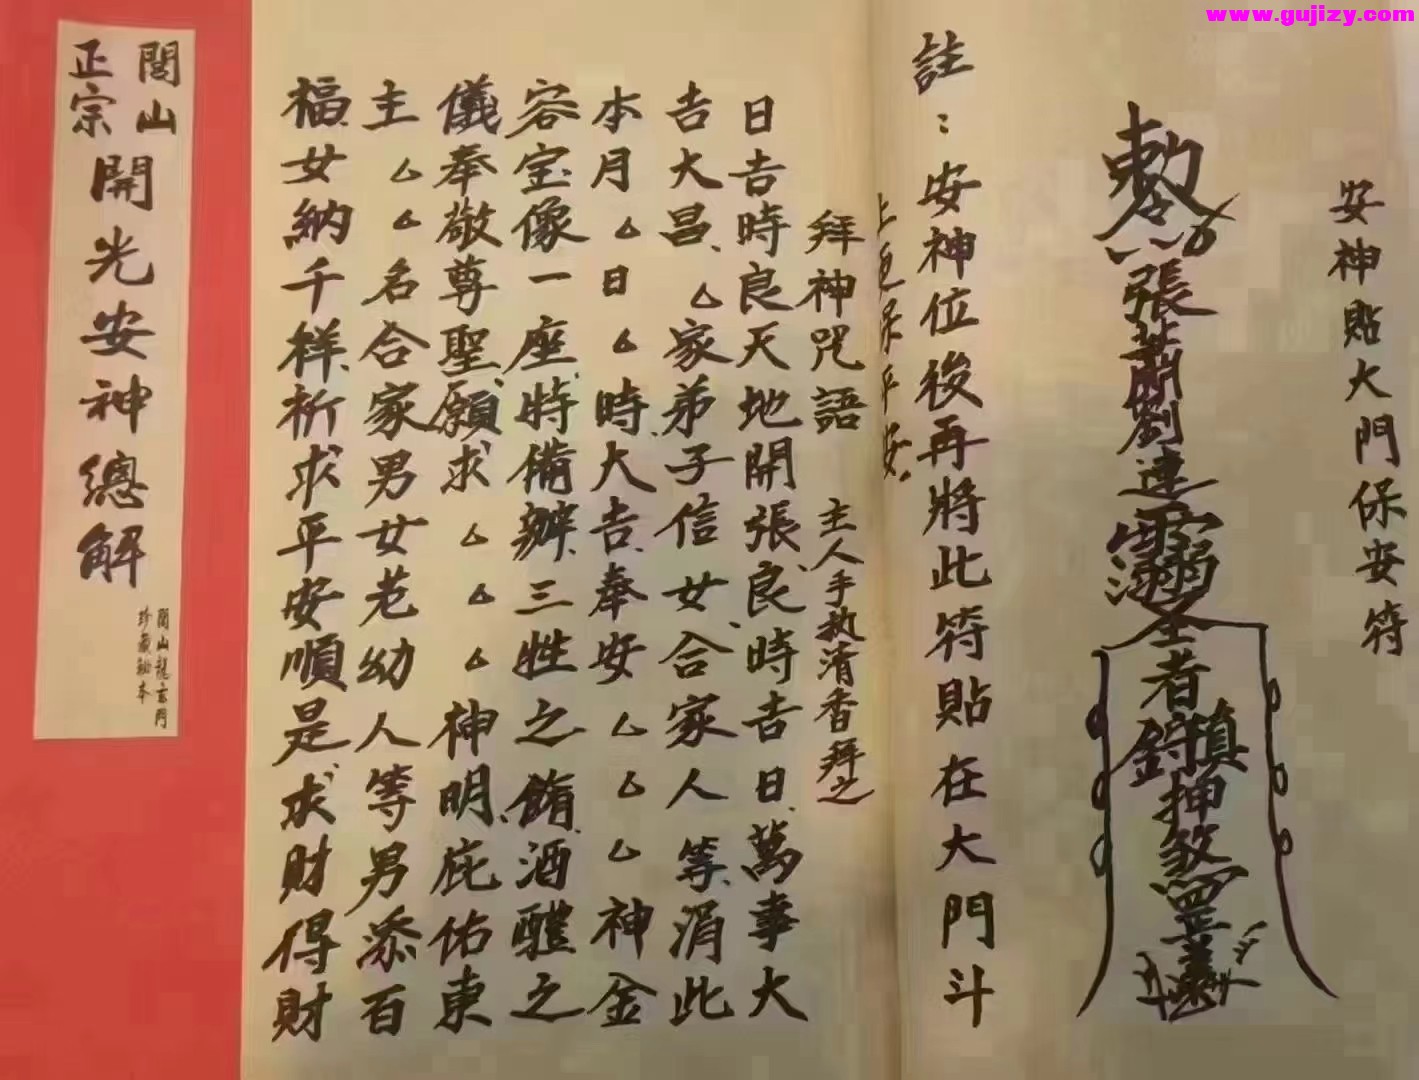 www.gujizy.com
安神貼大門保安符
敕
張蕭劉連
者
鎮
押煞罡
註：安神位後再將此符貼在大門斗
上包保平安。
拜神咒語 主人手执清香拜之
日吉時良天地開張、良時吉日、萬事大
吉大昌、△家弟子信女、合家人等、涓此
本月△日△時、大吉、奉安△△△神金
容宝像一座、特備辦、三牲之餚、酒醴之
儀奉敬尊聖、願求△△△神明、庇佑東
主△△名合家男女老幼人等男添百
福、女納千祥、祈求平安順是、求財得財
閭山
正宗
開光安神總解
閭山龍玄門
珍藏秘本